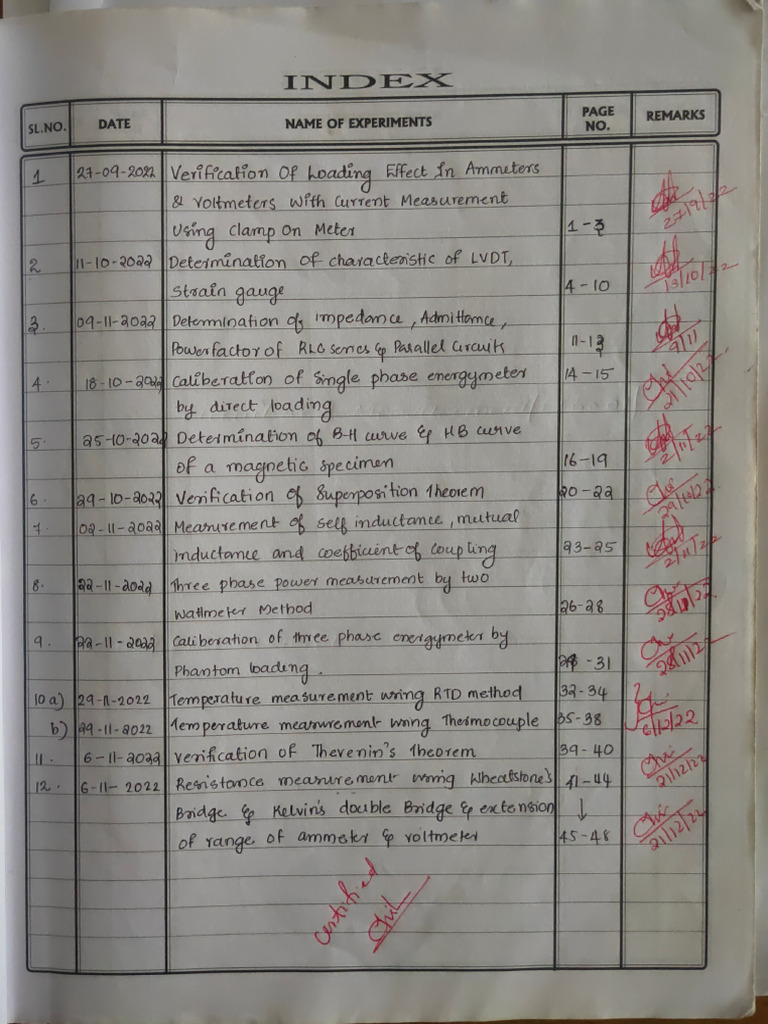 INDEX
SL.NO. DATE NAME OF EXPERIMENTS PAGE NO. REMARKS
1 27-09-2022 Verification Of Loading Effect In Ammeters
& Voltmeters With Current Measurement
Using Clamp On Meter 1-3 27/9/22
2 11-10-2022 Determination of characteristic of LVDT,
Strain gauge 4-10 13/10/22
3. 09-11-2022 Determination of impedance, Admittance,
Powerfactor of RLC series & Parallel Circuits 11-13 9/11
4. 18-10-2022 Caliberation of Single phase energymeter 14-15
by direct loading 21/10/22
5. 25-10-2022 Determination of B-H curve & HB curve
of a magnetic specimen 16-19 2/11/22
6. 29-10-2022 Verification of Superposition Theorem 20-22 29/10/22
7. 02-11-2022 Measurement of self inductance, mutual
inductance and coefficient of coupling 23-25 2/11/22
8. 22-11-2022 Three phase power measurement by two
Wattmeter Method 26-28
9. 22-11-2022 Caliberation of three phase energymeter by
Phantom loading. -31 28/11/22
10 a) 29-11-2022 Temperature measurement using RTD method 32-34
b) 29-11-2022 Temperature measurement using Thermocouple 35-38 6/12/22
11. 6-11-2022 Verification of Thevenin's Theorem 39-40
12. 6-11-2022 Resistance measurement using Wheatstone's 41-44 21/12/22
Bridge & Kelvin's double Bridge & extension ↓
of range of ammeter & voltmeter 45-48 21/12/22
Certified